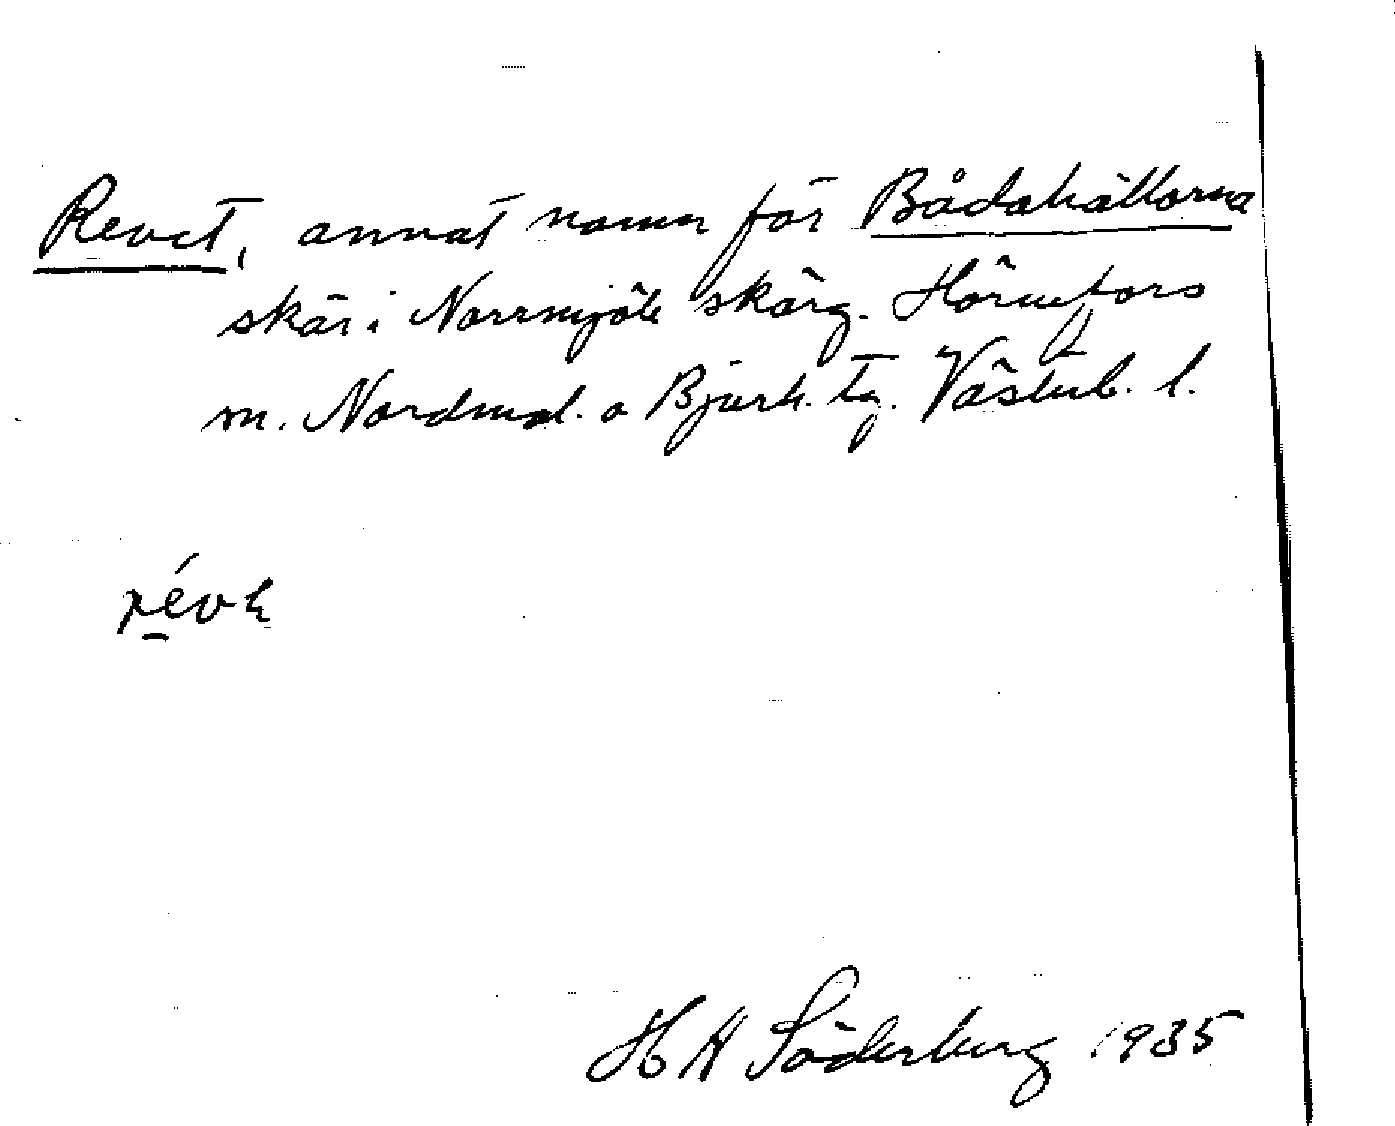 Revet, annat namn för Bådahällorna
skär i Norrmjöle skärg. Hörnefors
m. Nordmal. o Bjurh. tg. Västerb. l.
révɦ
H A Söderberg 1935